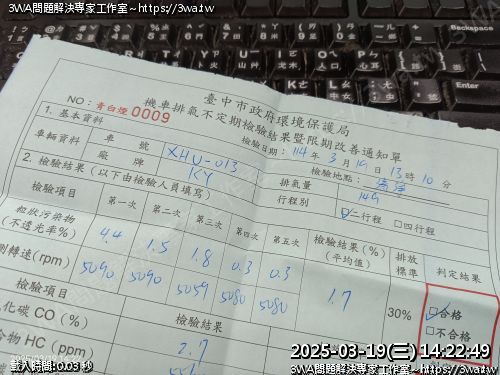 3WA問題解決專家工作室~https://3wa.tw
3WA問題解決專家工作室~https://3wa.tw
臺中市政府環境保護局
機車排氣不定期檢驗結果暨限期改善通知單
NO：青白煙0009
檢驗日期：114年3月19日13時10分
1. 基本資料
檢驗地點：
車輛資料 車號 XHU-013 排氣量 149
廠牌 KY 行程別 ☑二行程 □四行程
2. 檢驗結果（以下由檢驗人員填寫）
檢驗項目 第一次 第二次 第三次 第四次 第五次 檢驗結果(%)(平均值) 排放標準 判定結果
粒狀污染物(不透光率%) 4.4 1.5 1.8 0.3 0.3 1.7 30% ☑合格
測轉速(rpm) 5090 5090 5059 5080 5080 □不合格
檢驗項目 檢驗結果
化碳CO(%) 2.7
合物HC(ppm)
2025-03-19(三) 14:22:49
載入時間: 0.03 秒
3WA問題解決專家工作室~https://3wa.tw